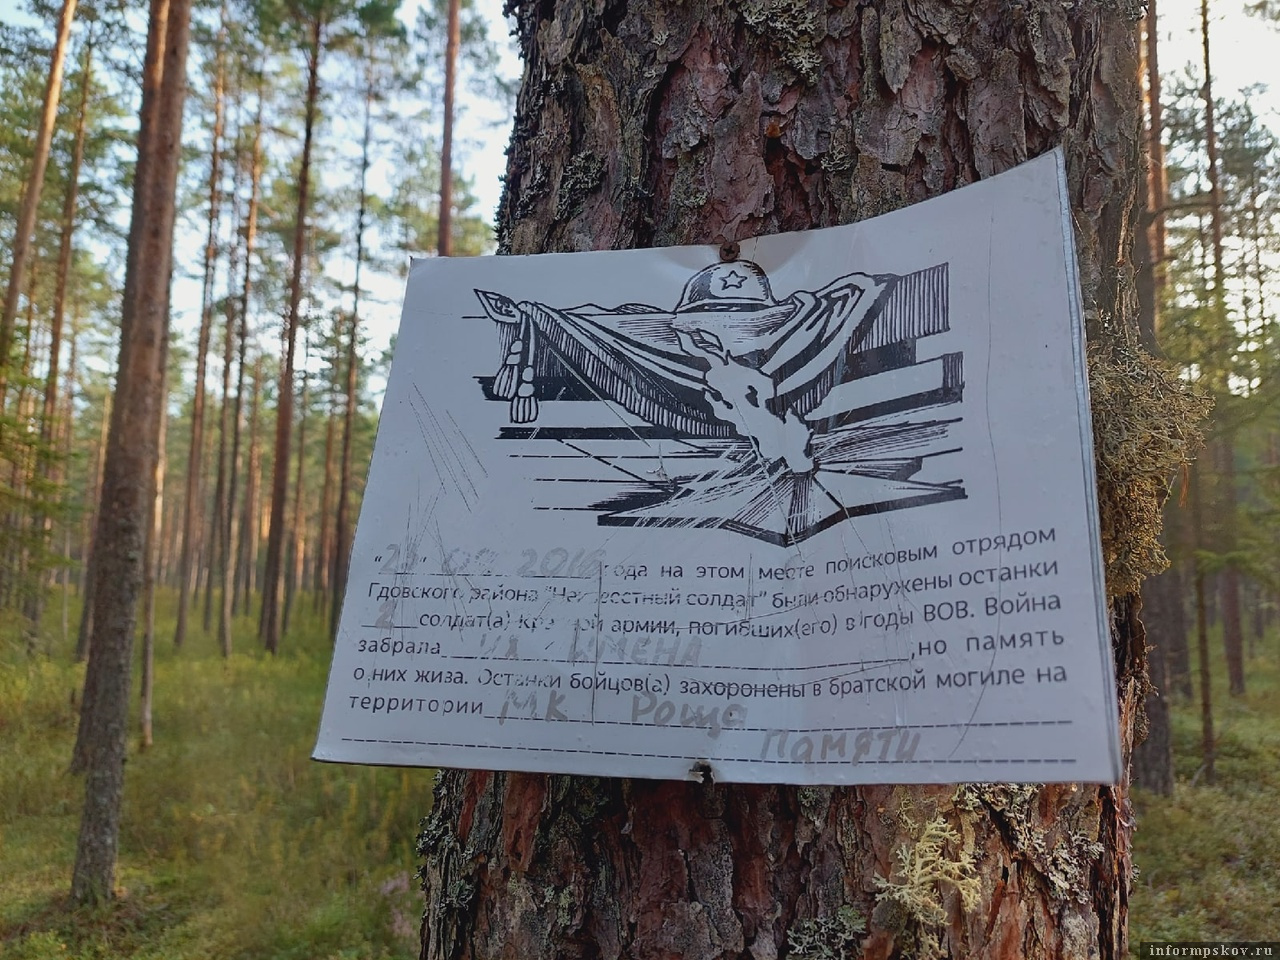 " " 2016 года на этом месте поисковым отрядом
Гдовского района "Неизвестный солдат" были обнаружены останки
2 солдат(а) красной армии, погибших(его) в годы ВОВ. Война
забрала их имена, но память
о них жива. Останки бойцов(а) захоронены в братской могиле на
территории МК Роща
памяти
informpskov.ru